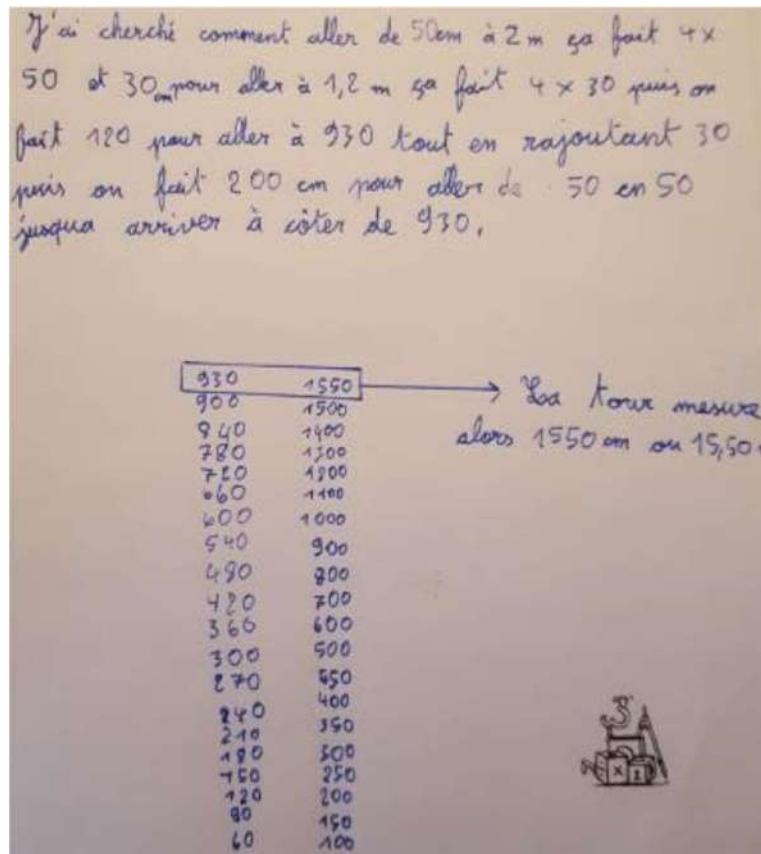 J'ai cherché comment aller de 50cm à 2 m ça fait 4x
50 et 30cm pour aller à 1,2 m ça fait 4 x 30 puis on
fait 120 pour aller à 930 tout en rajoutant 30
puis on fait 200 cm pour aller de 50 en 50
jusqua arriver à côter de 930.
930 1550 La tour mesure
900 1500 alors 1550 cm ou 15,50
840 1400
780 1300
720 1200
660 1100
600 1000
540 900
480 800
420 700
360 600
300 500
270 450
240 400
210 350
180 300
150 250
120 200
90 150
60 100